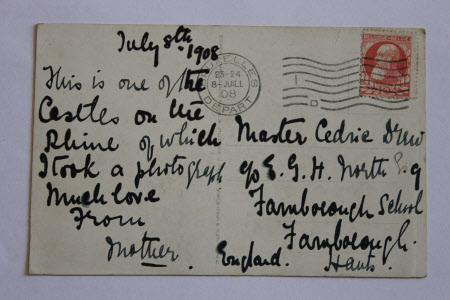 July 8th 1908
This is one of the
Castles on the
Rhine of which
I took a photograph
Much love
From
Mother.
BRUXELLES
23-24
8-JUIL
08
DEPART
BELGIQUE-BELGIE
Master Cedric Drew
c/o E. G. H. North Esq
Farnborough School
Farnborough.
Hants.
England.